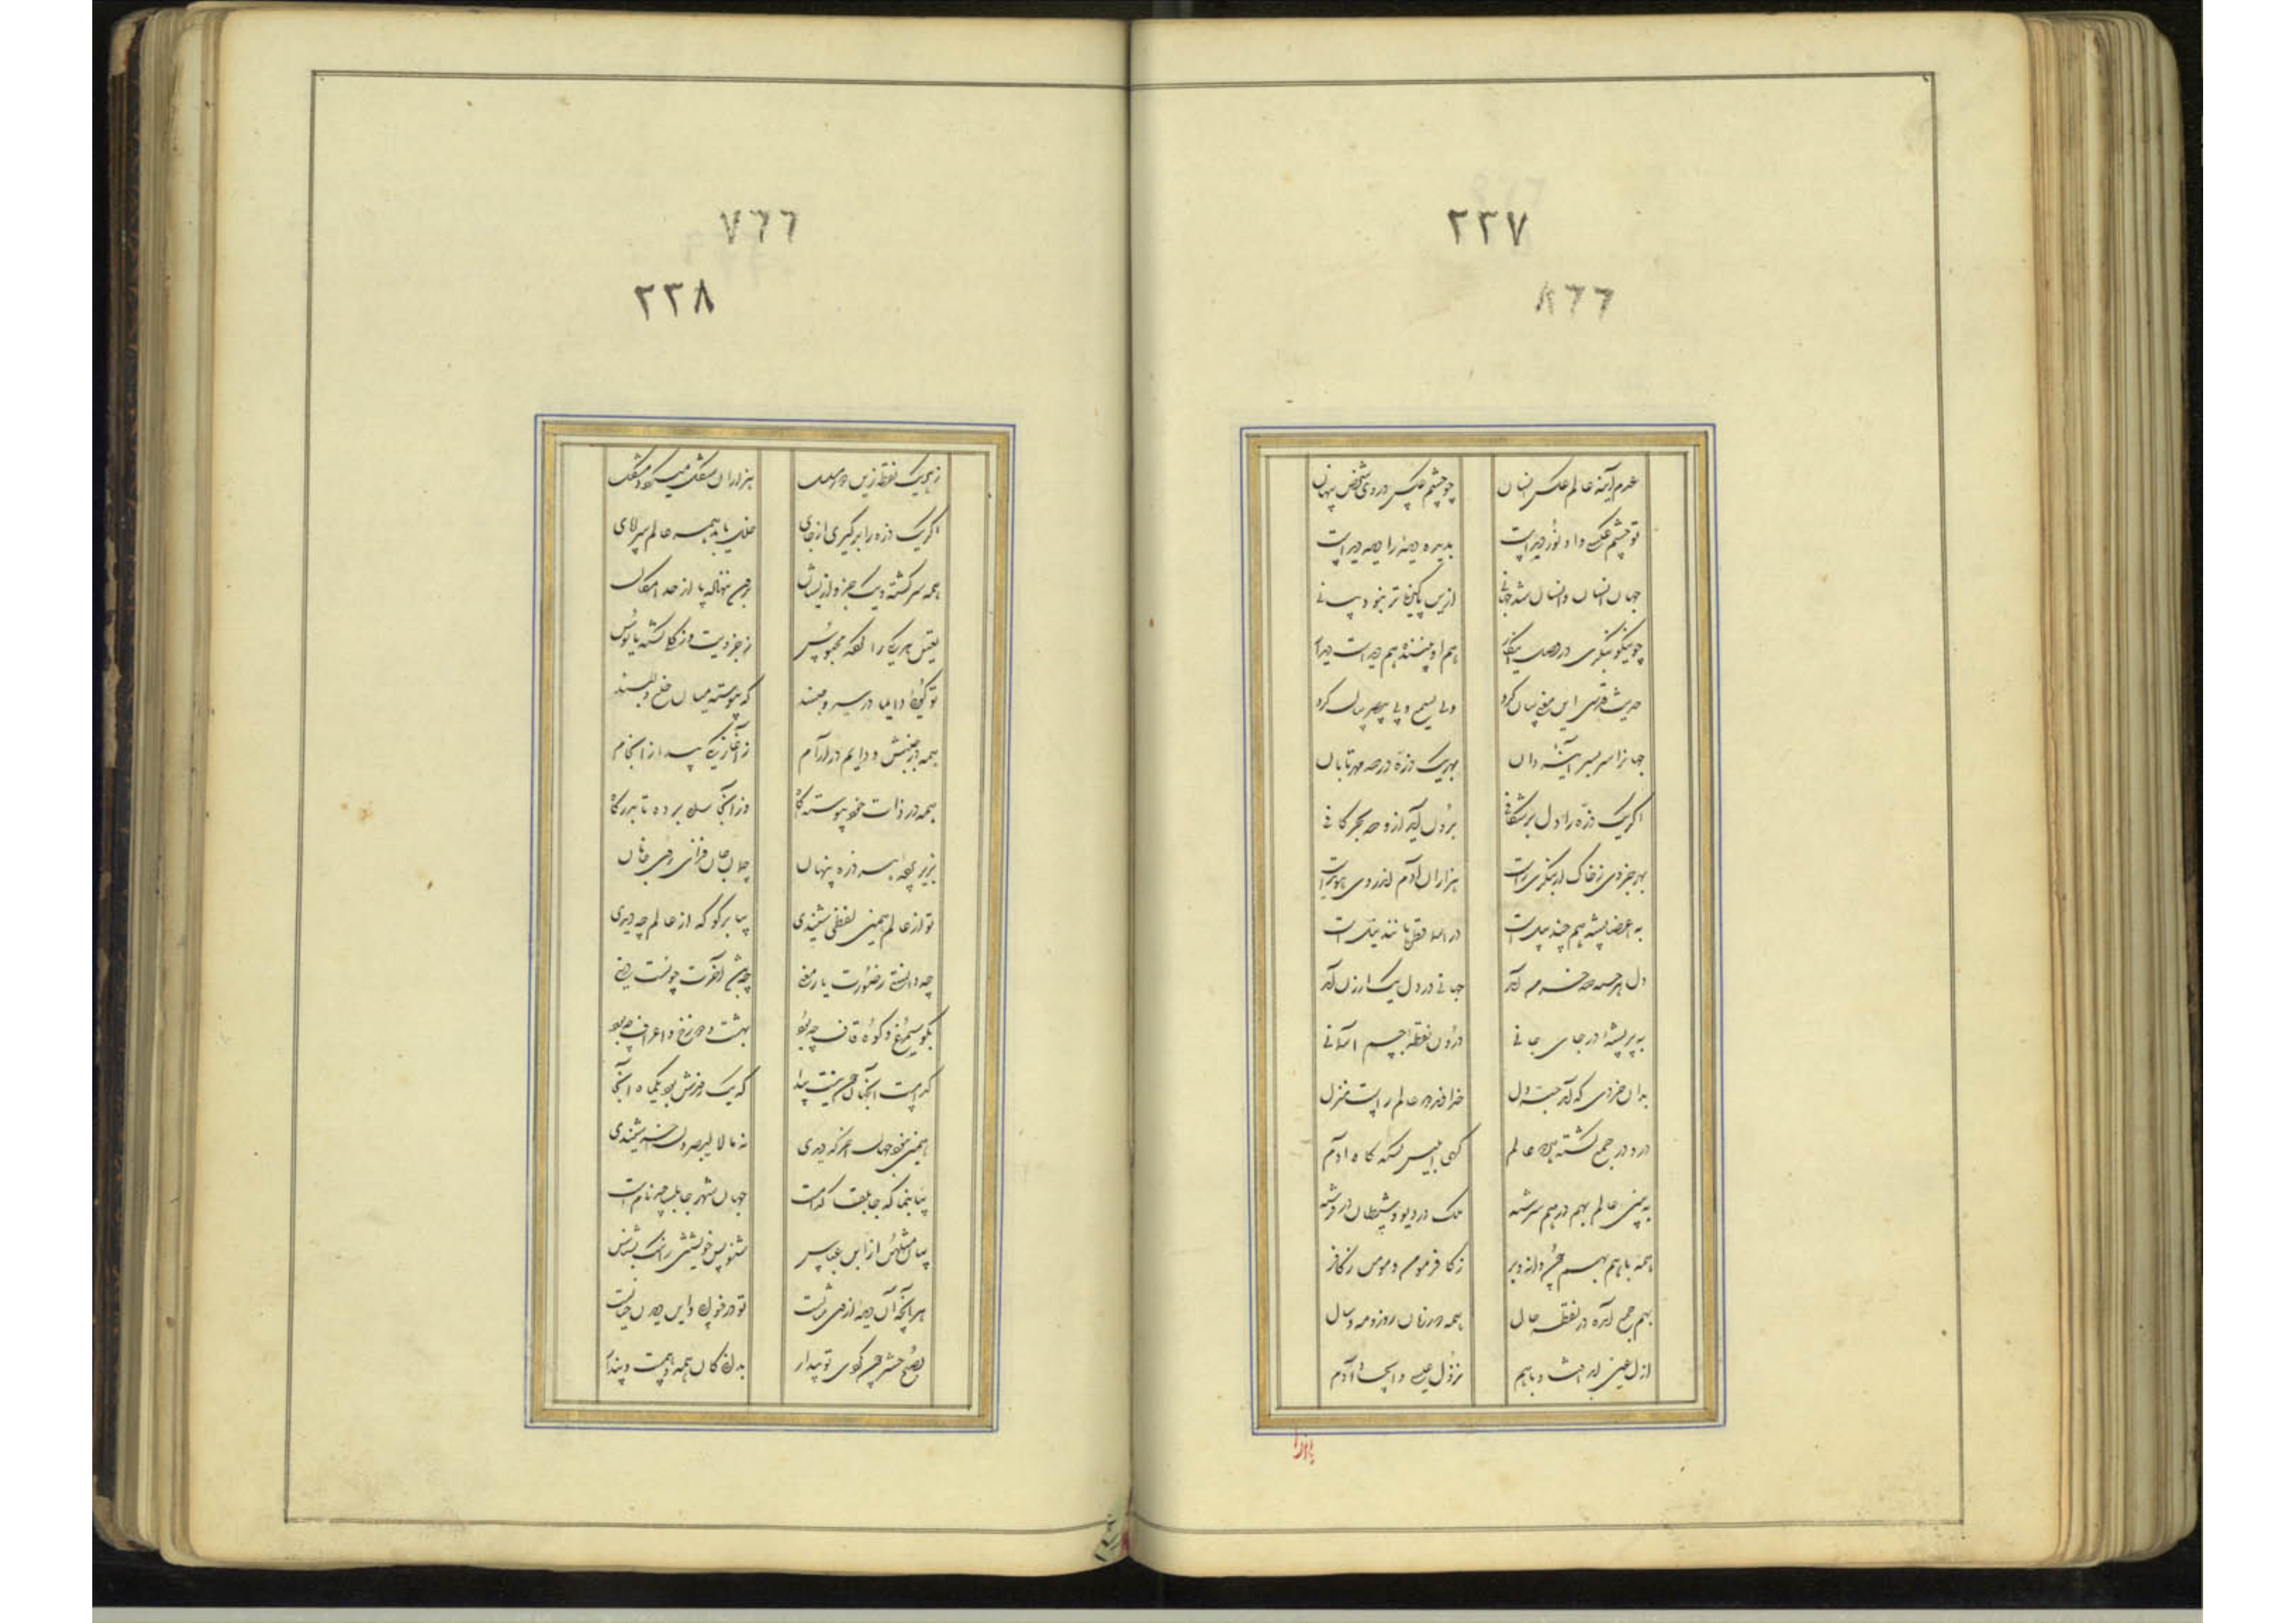 ٢٢٧
عدم آینه عالم عکس انسان چو چشم عکس در وی شخص پنهان
تو چشم عکسی و او نور دیده است بدیده دیده را دیده دیده است
جهان انسان و انسان شد جهانی ازین پاکیزه‌تر نبود بیانی
چو نیکو بنگری در اصل این کار هم او بیننده هم دیده است دیدار
حدیث قدسی این معنی بیان کرد و بی یسمع و بی یبصر عیان کرد
جهانرا سر بسر آیینه دان بهر یک ذره در صد مهر تابان
اگر یک ذره را دل بر شکافی برون آید ازو صد بحر کافی
بهر جزوی ز خاک ار بنگری راست هزاران آدم اندر وی هویداست
به اعضا پشه هم چند پیل است در اسما قطره مانند نیل است
دل هر حبه صد خرمن آمد جهانی در دل یک ارزن آمد
به پر پشه در جای جانی درون نقطه چشم آسمانی
بدان خردی که آمد حبه دل خداوند دو عالم راست منزل
درو در جمع گشته هر دو عالم گهی ابلیس گردد گاه آدم
ببین عالم بهم در هم سرشته ملک در دیو و شیطان در فرشته
همه با هم بهم چون دانه و بر ز کافر مومن و مومن ز کافر
بهم جمع آمده در نقطه حال همه دور زمان روز و مه و سال
ازل عین ابد افتاد با هم نزول عیسی و ایجاد آدم
٢٢٨
ز هر یک نقطه زین دور مسلسل هزاران شکل میگردد مشکل
اگر یک ذره را برگیری از جای خلل یابد همه عالم سراپای
همه سرگشته و یک جزو ازیشان برون ننهاده پا از حد امکان
تعین هر یکی را کرده محبوس ز جزویت ز کلی گشته مایوس
تو گویی دایما در سیر و حبسند که پیوسته میان خلع و لبسند
همه در جنبش و دایم در آرام نه آغاز یکی پیدا نه انجام
همه در ذات خود پیوسته آگاه وز آنجا راه برده تا بدرگاه
بزیر پرده هر ذره پنهان جمال جان فزای روی جانان
تو از عالم همین لفظی شنیدی بیا برگو که از عالم چه دیدی
چه دانستی ز صورت یا ز معنی چه باشد آخرت چونست دنیی
بگو سیمرغ و کوه قاف چبود بهشت و دوزخ و اعراف چبود
کدامست آنجهان چون نیست پیدا که یک روزش بود یکماه آنجا
همین نبود جهان آخر که دیدی نه ما لا تبصرون آخر شنیدی
بیا بنما که جابلقا کدامست جهان شهر جابلسا چه نام است
بیان مثلهن از ابن عباس شنو پس خویشتن را نیک بشناس
هر آنچه آن دیده از وی مثالست تو در خوابی و این دیدن خیالست
بصبح حشر چون گردی تو بیدار بدانی کان همه وهمست و پندار